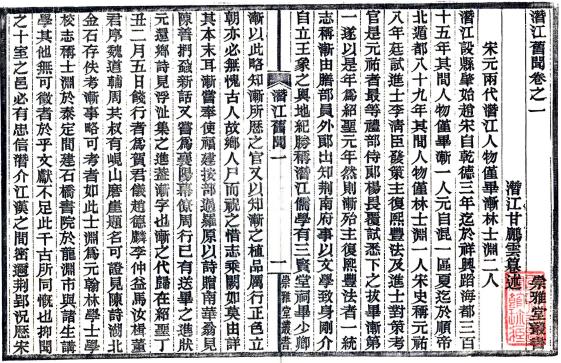 潛江舊聞卷之一
崇雅堂叢書
潛江甘鵬雲纂述
宋元兩代潛江人物僅畢漸林士淵二人
潛江設縣肇始趙宋自乾德三年迄於祥興蹈海都三百
十五年其間人物僅畢漸一人元自混一區夏迄於順帝
北遁都八十九年其間人物僅林士淵一人宋史稱元祐
八年廷試進士李清臣發策主復熙豐法及進士對策考
官是元祐者最等禮部侍郎楊畏覆試悉下之拔畢漸第
一遂以是年為紹聖元年然則漸殆主復熙豐法者一統
志稱漸由膳部員外郎出知荊南府事以文學致身剛介
自立王象之輿地紀勝稱潛江儒學有三賢堂祠畢少卿
潛江舊聞
一
崇雅堂叢書
漸以此略知漸所歷之官又以知漸之植品厲行正色立
朝亦必無愧古人故鄉人尸而祝之惜志乘闕如莫由詳
其本末耳漸嘗奉使福建按部過羅原以詩贈南華翁見
陳善捫蝨新話又嘗為襄陽幕僚周行已有送畢之進狀
元還鄉詩見浮沚集之進蓋漸字也漸之代歸在紹聖丁
丑二月五日餞行者為賀君儀趙德麟李仲益馬汝楫董
君序魏道輔周共叔有峴山磨崖題名可證見陳詩湖北
金石存佚考漸事略可考者如此士淵為元翰林學士學
校志稱士淵於泰定間建石橋書院於龍淵市與諸生講
學其他無可徵者於乎文獻不足此千古所同慨也抑聞
之十室之邑必有忠信潛介江漢之間密邇荊郢況歷宋